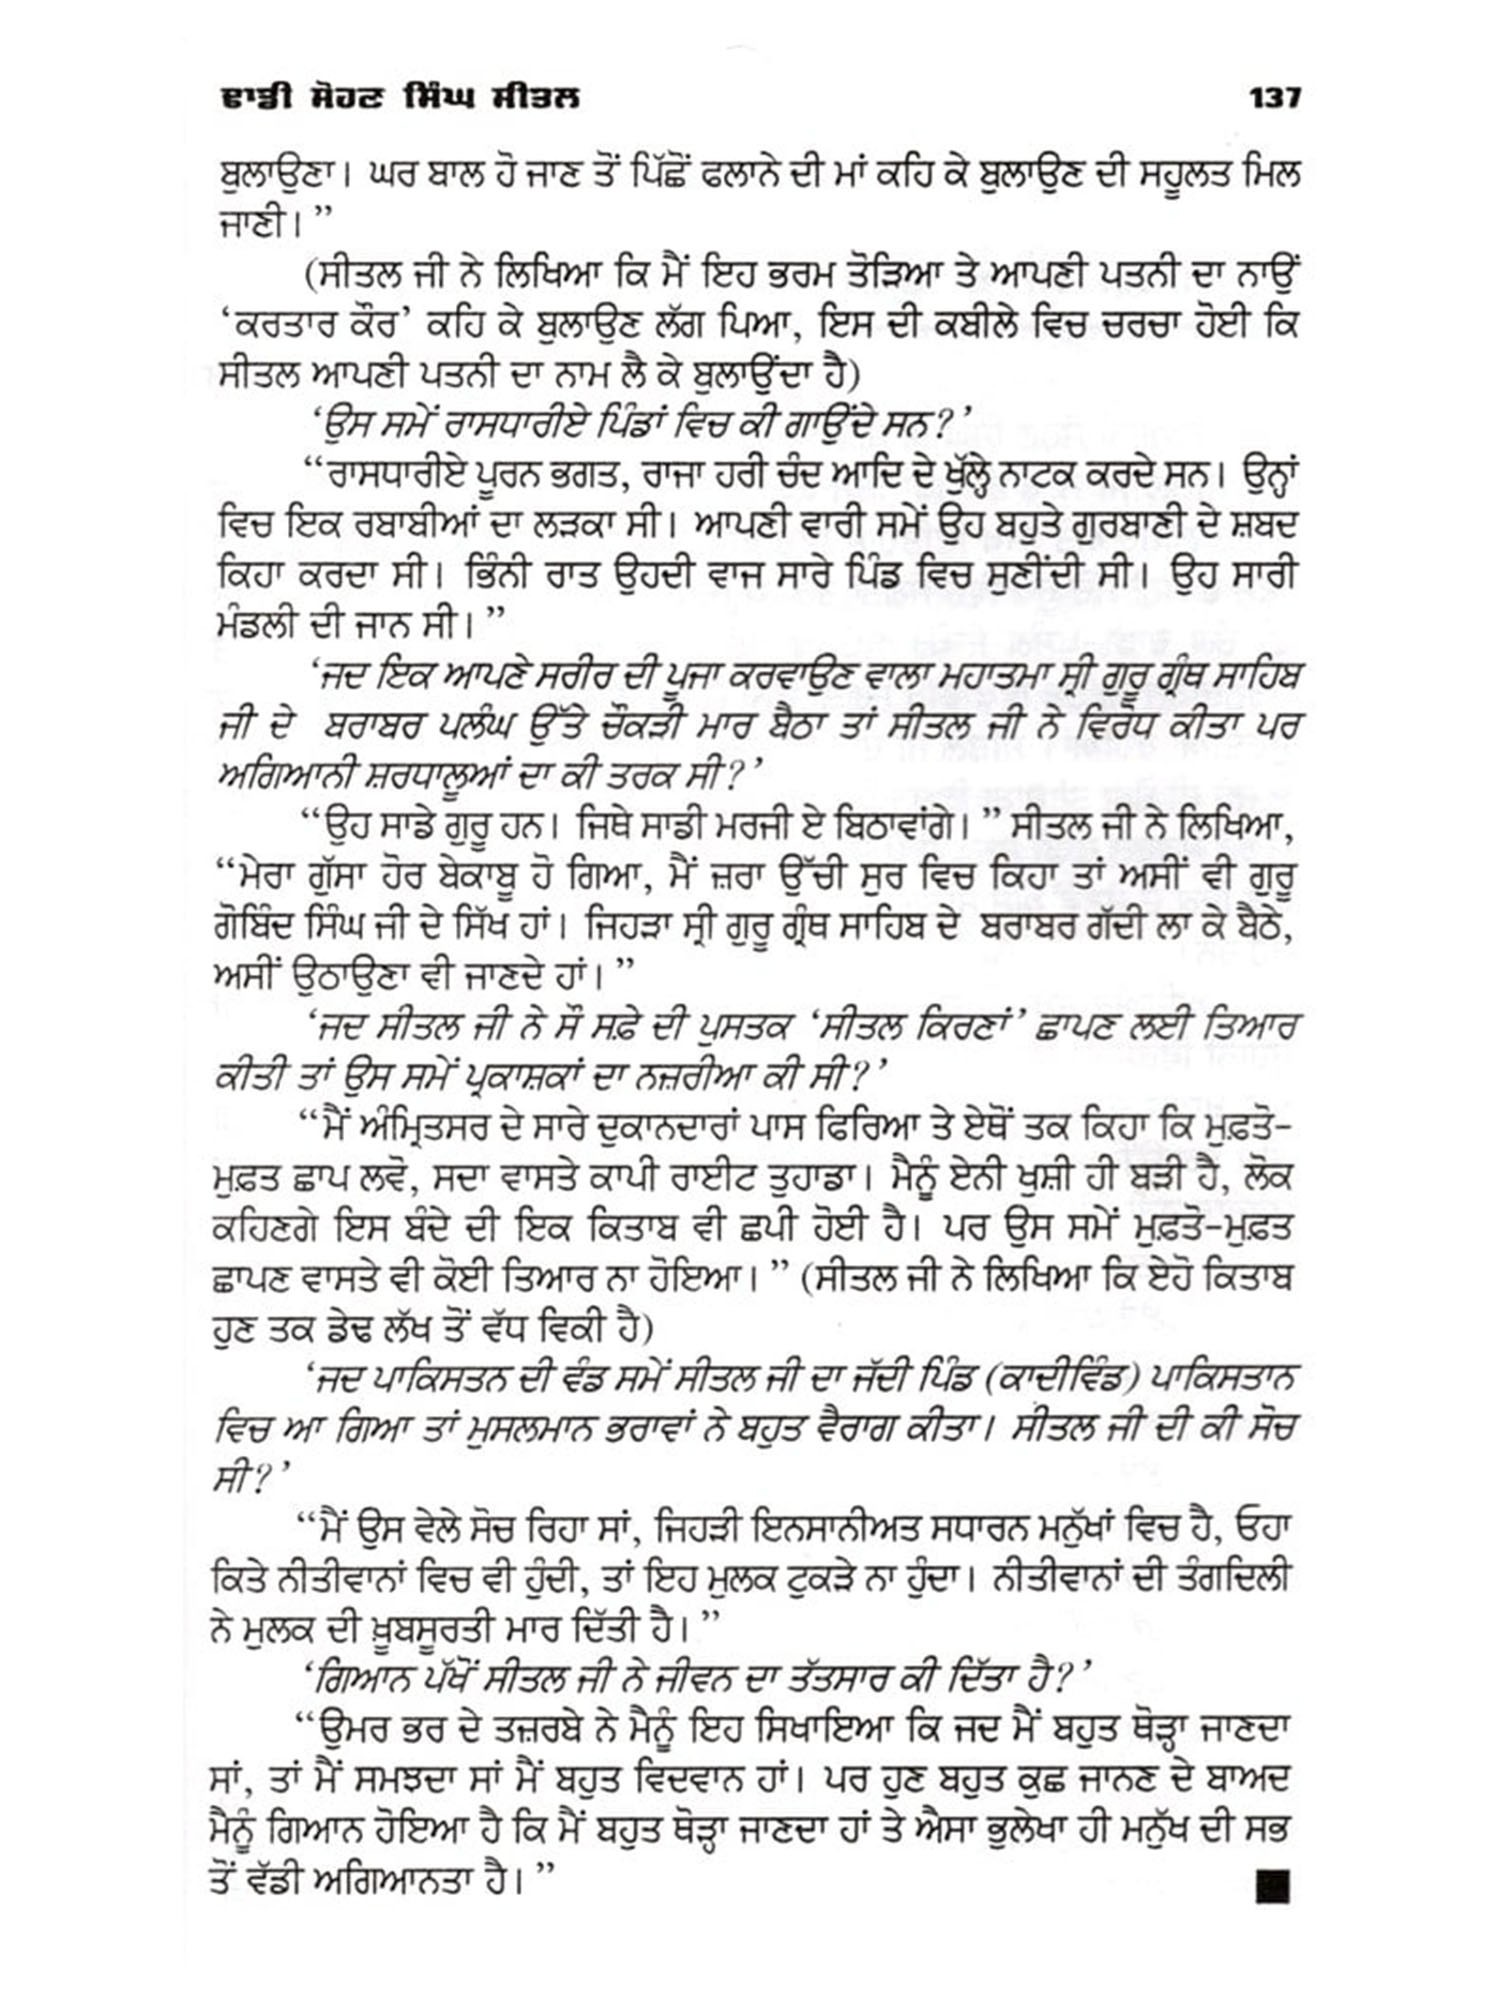 ਢਾਡੀ ਸੋਹਣ ਸਿੰਘ ਸੀਤਲ 137
ਬੁਲਾਉਣਾ। ਘਰ ਬਾਲ ਹੋ ਜਾਣ ਤੋਂ ਪਿੱਛੋਂ ਫਲਾਨੇ ਦੀ ਮਾਂ ਕਹਿ ਕੇ ਬੁਲਾਉਣ ਦੀ ਸਹੂਲਤ ਮਿਲ
ਜਾਣੀ।”
(ਸੀਤਲ ਜੀ ਨੇ ਲਿਖਿਆ ਕਿ ਮੈਂ ਇਹ ਭਰਮ ਤੋੜਿਆ ਤੇ ਆਪਣੀ ਪਤਨੀ ਦਾ ਨਾਉਂ
‘ਕਰਤਾਰ ਕੌਰ’ ਕਹਿ ਕੇ ਬੁਲਾਉਣ ਲੱਗ ਪਿਆ, ਇਸ ਦੀ ਕਬੀਲੇ ਵਿਚ ਚਰਚਾ ਹੋਈ ਕਿ
ਸੀਤਲ ਆਪਣੀ ਪਤਨੀ ਦਾ ਨਾਮ ਲੈ ਕੇ ਬੁਲਾਉਂਦਾ ਹੈ)
‘ਉਸ ਸਮੇਂ ਰਾਸਧਾਰੀਏ ਪਿੰਡਾਂ ਵਿਚ ਕੀ ਗਾਉਂਦੇ ਸਨ?’
“ਰਾਸਧਾਰੀਏ ਪੂਰਨ ਭਗਤ, ਰਾਜਾ ਹਰੀ ਚੰਦ ਆਦਿ ਦੇ ਖੁੱਲ੍ਹੇ ਨਾਟਕ ਕਰਦੇ ਸਨ। ਉਨ੍ਹਾਂ
ਵਿਚ ਇਕ ਰਬਾਬੀਆਂ ਦਾ ਲੜਕਾ ਸੀ। ਆਪਣੀ ਵਾਰੀ ਸਮੇਂ ਉਹ ਬਹੁਤੇ ਗੁਰਬਾਣੀ ਦੇ ਸ਼ਬਦ
ਕਿਹਾ ਕਰਦਾ ਸੀ। ਭਿੰਨੀ ਰਾਤ ਉਹਦੀ ਵਾਜ ਸਾਰੇ ਪਿੰਡ ਵਿਚ ਸੁਣੀਂਦੀ ਸੀ। ਉਹ ਸਾਰੀ
ਮੰਡਲੀ ਦੀ ਜਾਨ ਸੀ।”
‘ਜਦ ਇਕ ਆਪਣੇ ਸਰੀਰ ਦੀ ਪੂਜਾ ਕਰਵਾਉਣ ਵਾਲਾ ਮਹਾਤਮਾ ਸ੍ਰੀ ਗੁਰੂ ਗ੍ਰੰਥ ਸਾਹਿਬ
ਜੀ ਦੇ ਬਰਾਬਰ ਪਲੰਘ ਉੱਤੇ ਚੌਕੜੀ ਮਾਰ ਬੈਠਾ ਤਾਂ ਸੀਤਲ ਜੀ ਨੇ ਵਿਰੋਧ ਕੀਤਾ ਪਰ
ਅਗਿਆਨੀ ਸ਼ਰਧਾਲੂਆਂ ਦਾ ਕੀ ਤਰਕ ਸੀ?’
“ਉਹ ਸਾਡੇ ਗੁਰੂ ਹਨ। ਜਿਥੇ ਸਾਡੀ ਮਰਜੀ ਏ ਬਿਠਾਵਾਂਗੇ।” ਸੀਤਲ ਜੀ ਨੇ ਲਿਖਿਆ,
“ਮੇਰਾ ਗੁੱਸਾ ਹੋਰ ਬੇਕਾਬੂ ਹੋ ਗਿਆ, ਮੈਂ ਜ਼ਰਾ ਉੱਚੀ ਸੁਰ ਵਿਚ ਕਿਹਾ ਤਾਂ ਅਸੀਂ ਵੀ ਗੁਰੂ
ਗੋਬਿੰਦ ਸਿੰਘ ਜੀ ਦੇ ਸਿੱਖ ਹਾਂ। ਜਿਹੜਾ ਸ੍ਰੀ ਗੁਰੂ ਗ੍ਰੰਥ ਸਾਹਿਬ ਦੇ ਬਰਾਬਰ ਗੱਦੀ ਲਾ ਕੇ ਬੈਠੇ,
ਅਸੀਂ ਉਠਾਉਣਾ ਵੀ ਜਾਣਦੇ ਹਾਂ।”
‘ਜਦ ਸੀਤਲ ਜੀ ਨੇ ਸੌ ਸਫ਼ੇ ਦੀ ਪੁਸਤਕ ‘ਸੀਤਲ ਕਿਰਣਾਂ’ ਛਾਪਣ ਲਈ ਤਿਆਰ
ਕੀਤੀ ਤਾਂ ਉਸ ਸਮੇਂ ਪ੍ਰਕਾਸ਼ਕਾਂ ਦਾ ਨਜ਼ਰੀਆ ਕੀ ਸੀ?’
“ਮੈਂ ਅੰਮ੍ਰਿਤਸਰ ਦੇ ਸਾਰੇ ਦੁਕਾਨਦਾਰਾਂ ਪਾਸ ਫਿਰਿਆ ਤੇ ਏਥੋਂ ਤਕ ਕਿਹਾ ਕਿ ਮੁਫ਼ਤੋ-
ਮੁਫ਼ਤ ਛਾਪ ਲਵੋ, ਸਦਾ ਵਾਸਤੇ ਕਾਪੀ ਰਾਈਟ ਤੁਹਾਡਾ। ਮੈਨੂੰ ਏਨੀ ਖੁਸ਼ੀ ਹੀ ਬੜੀ ਹੈ, ਲੋਕ
ਕਹਿਣਗੇ ਇਸ ਬੰਦੇ ਦੀ ਇਕ ਕਿਤਾਬ ਵੀ ਛਪੀ ਹੋਈ ਹੈ। ਪਰ ਉਸ ਸਮੇਂ ਮੁਫ਼ਤੋ-ਮੁਫ਼ਤ
ਛਾਪਣ ਵਾਸਤੇ ਵੀ ਕੋਈ ਤਿਆਰ ਨਾ ਹੋਇਆ।” (ਸੀਤਲ ਜੀ ਨੇ ਲਿਖਿਆ ਕਿ ਏਹੋ ਕਿਤਾਬ
ਹੁਣ ਤਕ ਡੇਢ ਲੱਖ ਤੋਂ ਵੱਧ ਵਿਕੀ ਹੈ)
‘ਜਦ ਪਾਕਿਸਤਨ ਦੀ ਵੰਡ ਸਮੇਂ ਸੀਤਲ ਜੀ ਦਾ ਜੱਦੀ ਪਿੰਡ (ਕਾਦੀਵਿੰਡ) ਪਾਕਿਸਤਾਨ
ਵਿਚ ਆ ਗਿਆ ਤਾਂ ਮੁਸਲਮਾਨ ਭਰਾਵਾਂ ਨੇ ਬਹੁਤ ਵੈਰਾਗ ਕੀਤਾ। ਸੀਤਲ ਜੀ ਦੀ ਕੀ ਸੋਚ
ਸੀ?’
“ਮੈਂ ਉਸ ਵੇਲੇ ਸੋਚ ਰਿਹਾ ਸਾਂ, ਜਿਹੜੀ ਇਨਸਾਨੀਅਤ ਸਧਾਰਨ ਮਨੁੱਖਾਂ ਵਿਚ ਹੈ, ਓਹਾ
ਕਿਤੇ ਨੀਤੀਵਾਨਾਂ ਵਿਚ ਵੀ ਹੁੰਦੀ, ਤਾਂ ਇਹ ਮੁਲਕ ਟੁਕੜੇ ਨਾ ਹੁੰਦਾ। ਨੀਤੀਵਾਨਾਂ ਦੀ ਤੰਗਦਿਲੀ
ਨੇ ਮੁਲਕ ਦੀ ਖ਼ੂਬਸੂਰਤੀ ਮਾਰ ਦਿੱਤੀ ਹੈ।”
‘ਗਿਆਨ ਪੱਖੋਂ ਸੀਤਲ ਜੀ ਨੇ ਜੀਵਨ ਦਾ ਤੱਤਸਾਰ ਕੀ ਦਿੱਤਾ ਹੈ?’
“ਉਮਰ ਭਰ ਦੇ ਤਜ਼ਰਬੇ ਨੇ ਮੈਨੂੰ ਇਹ ਸਿਖਾਇਆ ਕਿ ਜਦ ਮੈਂ ਬਹੁਤ ਥੋੜ੍ਹਾ ਜਾਣਦਾ
ਸਾਂ, ਤਾਂ ਮੈਂ ਸਮਝਦਾ ਸਾਂ ਮੈਂ ਬਹੁਤ ਵਿਦਵਾਨ ਹਾਂ। ਪਰ ਹੁਣ ਬਹੁਤ ਕੁਛ ਜਾਨਣ ਦੇ ਬਾਅਦ
ਮੈਨੂੰ ਗਿਆਨ ਹੋਇਆ ਹੈ ਕਿ ਮੈਂ ਬਹੁਤ ਥੋੜ੍ਹਾ ਜਾਣਦਾ ਹਾਂ ਤੇ ਐਸਾ ਭੁਲੇਖਾ ਹੀ ਮਨੁੱਖ ਦੀ ਸਭ
ਤੋਂ ਵੱਡੀ ਅਗਿਆਨਤਾ ਹੈ।”